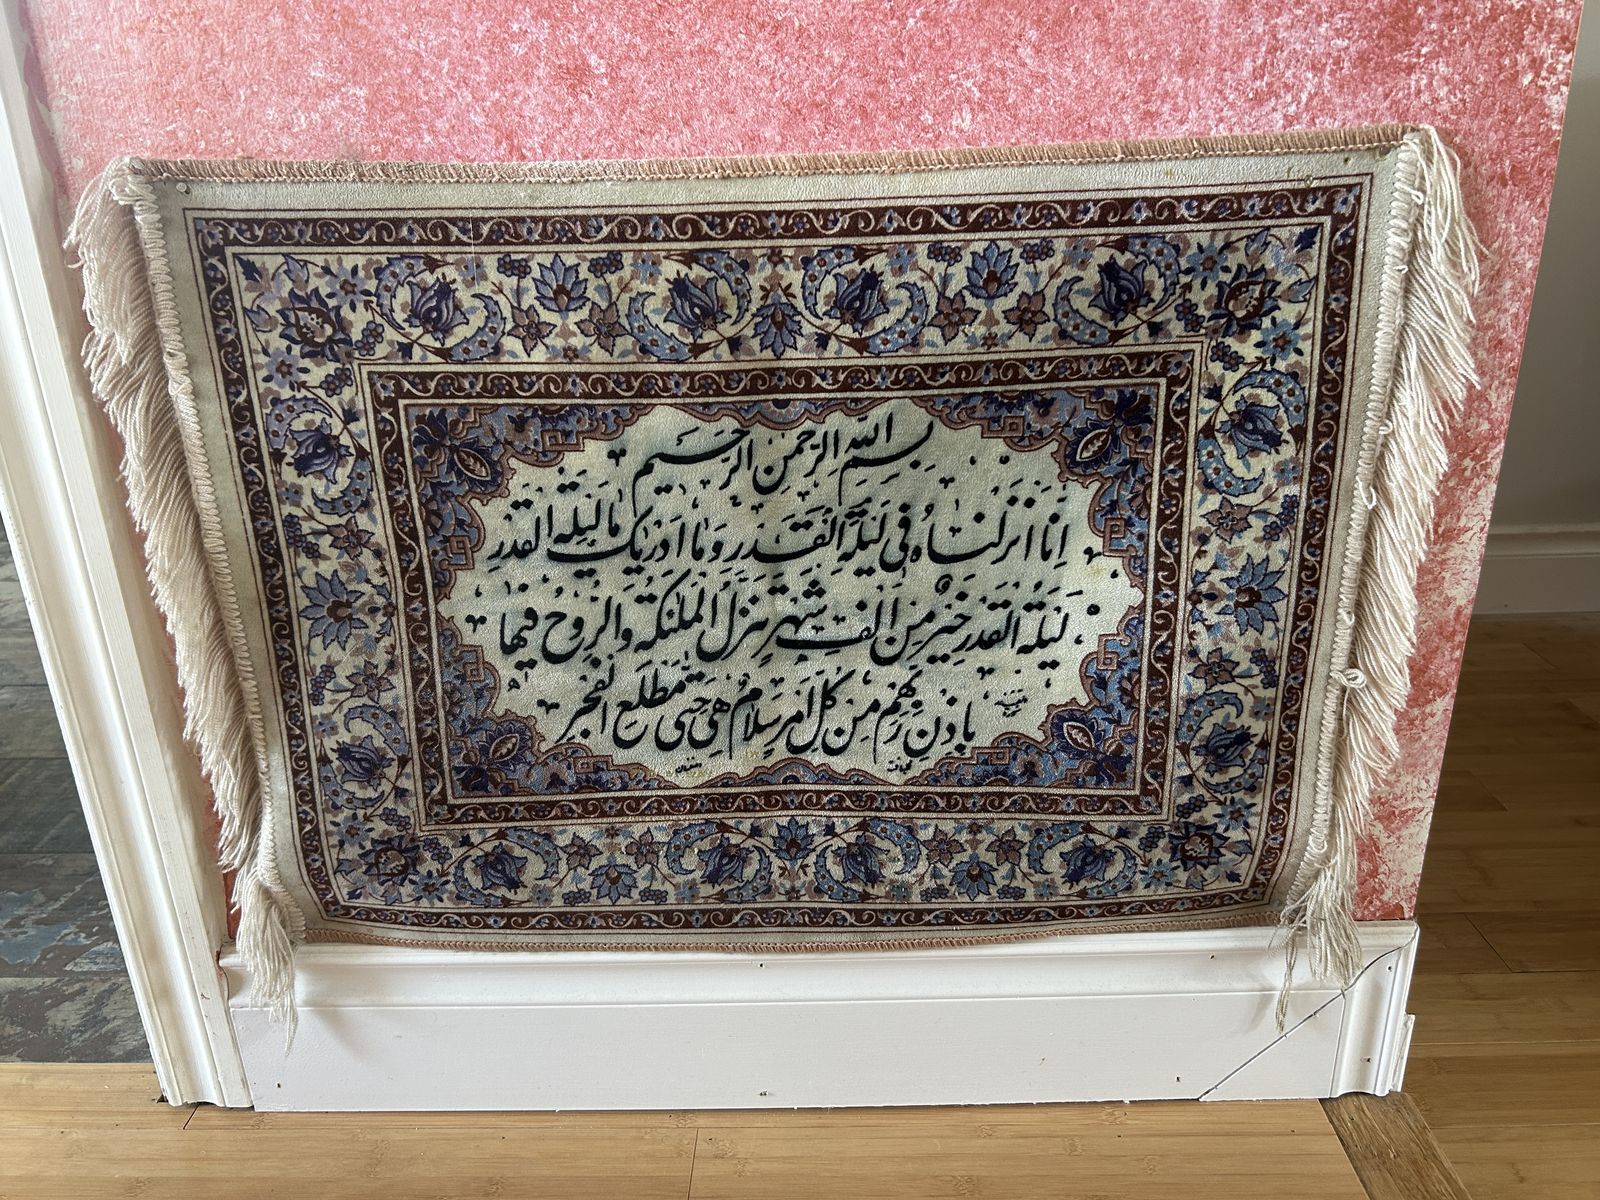 بِسْمِ اللهِ الرَّحْمنِ الرَّحیمِ
اِنّا اَنْزَلْناهُ فی لَیْلَةِ الْقَدْرِ وَما اَدْریٰکَ ما لَیْلَةُ الْقَدْرِ
لَیْلَةُ الْقَدْرِ خَیْرٌ مِنْ اَلْفِ شَهْرٍ تَنَزَّلُ الْمَلٰئِکَةُ وَالرُّوحُ فیها
بِاِذْنِ رَبِّهِمْ مِنْ کُلِّ اَمْرٍ سَلامٌ هِیَ حَتّی مَطْلَعِ الْفَجْرِ